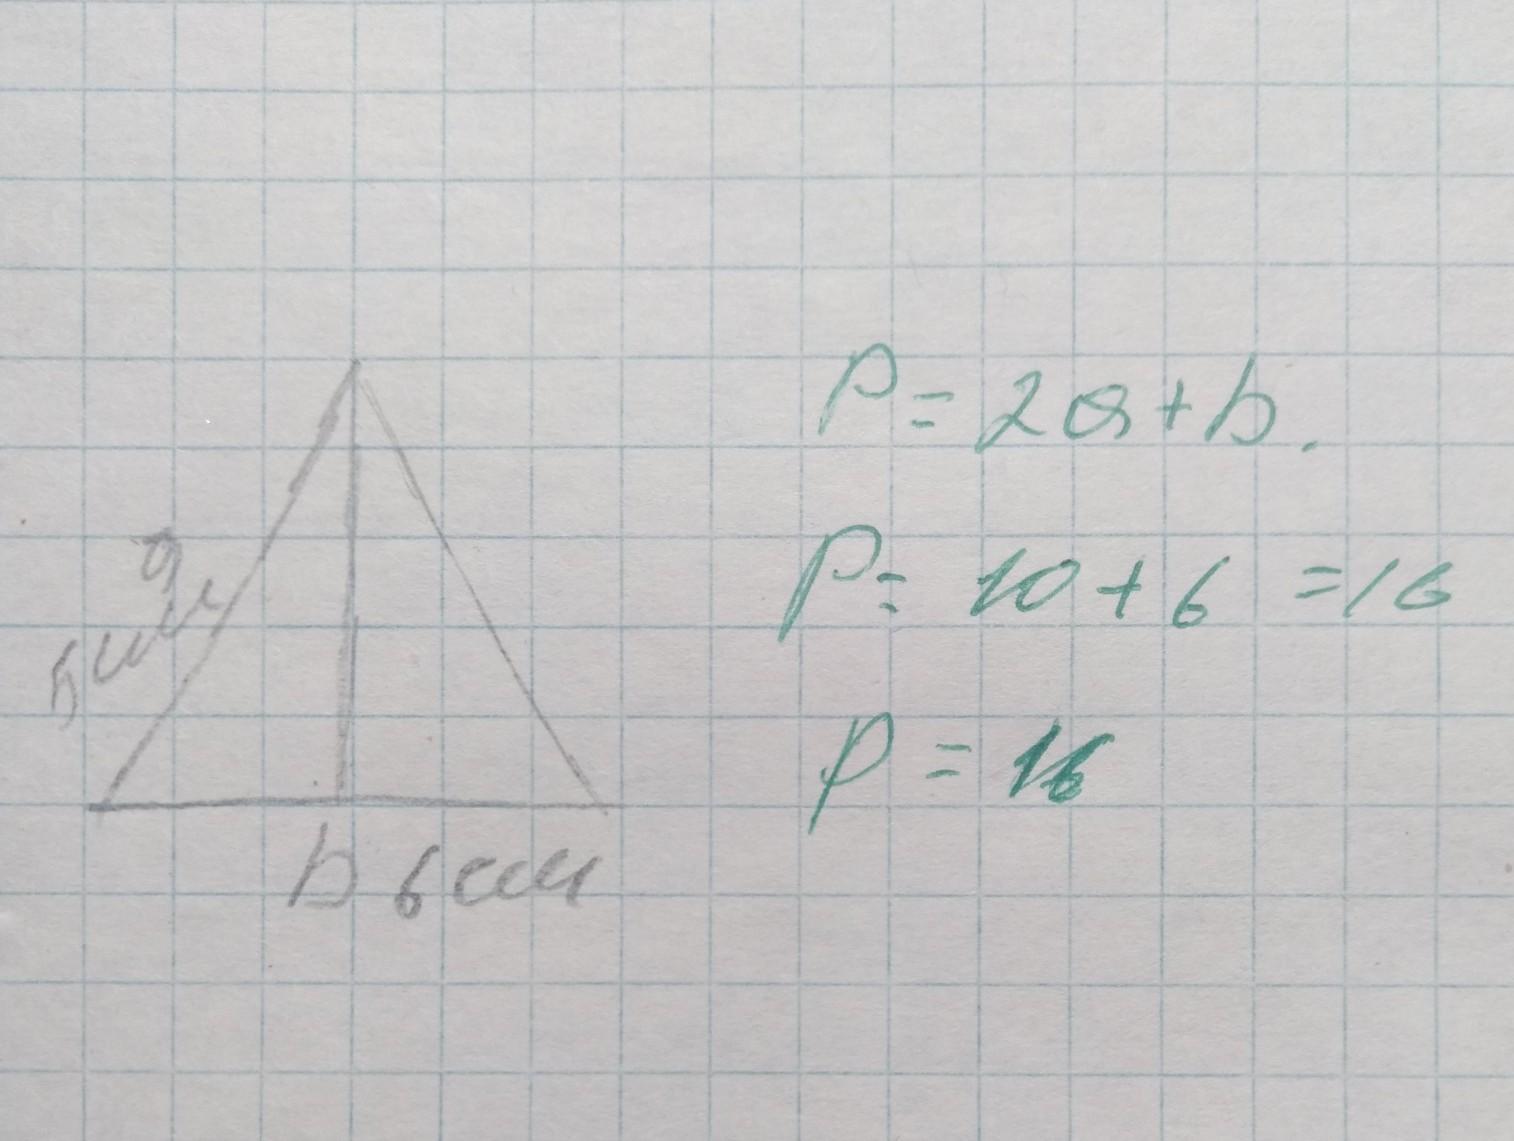 a
5 см
b 6 см
P = 2a + b.
P = 10 + 6 = 16
P = 16